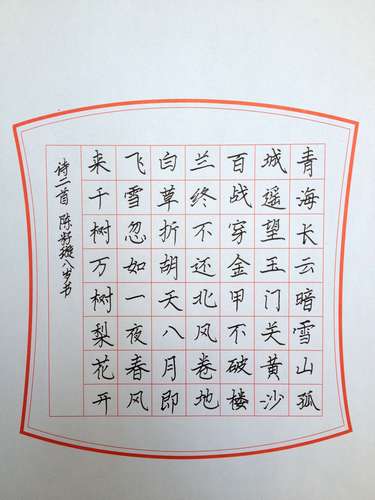 青海长云暗雪山孤
城遥望玉门关黄沙
百战穿金甲不破楼
兰终不还北风卷地
白草折胡天八月即
飞雪忽如一夜春风
来千树万树梨花开
诗二首 陈 八岁书